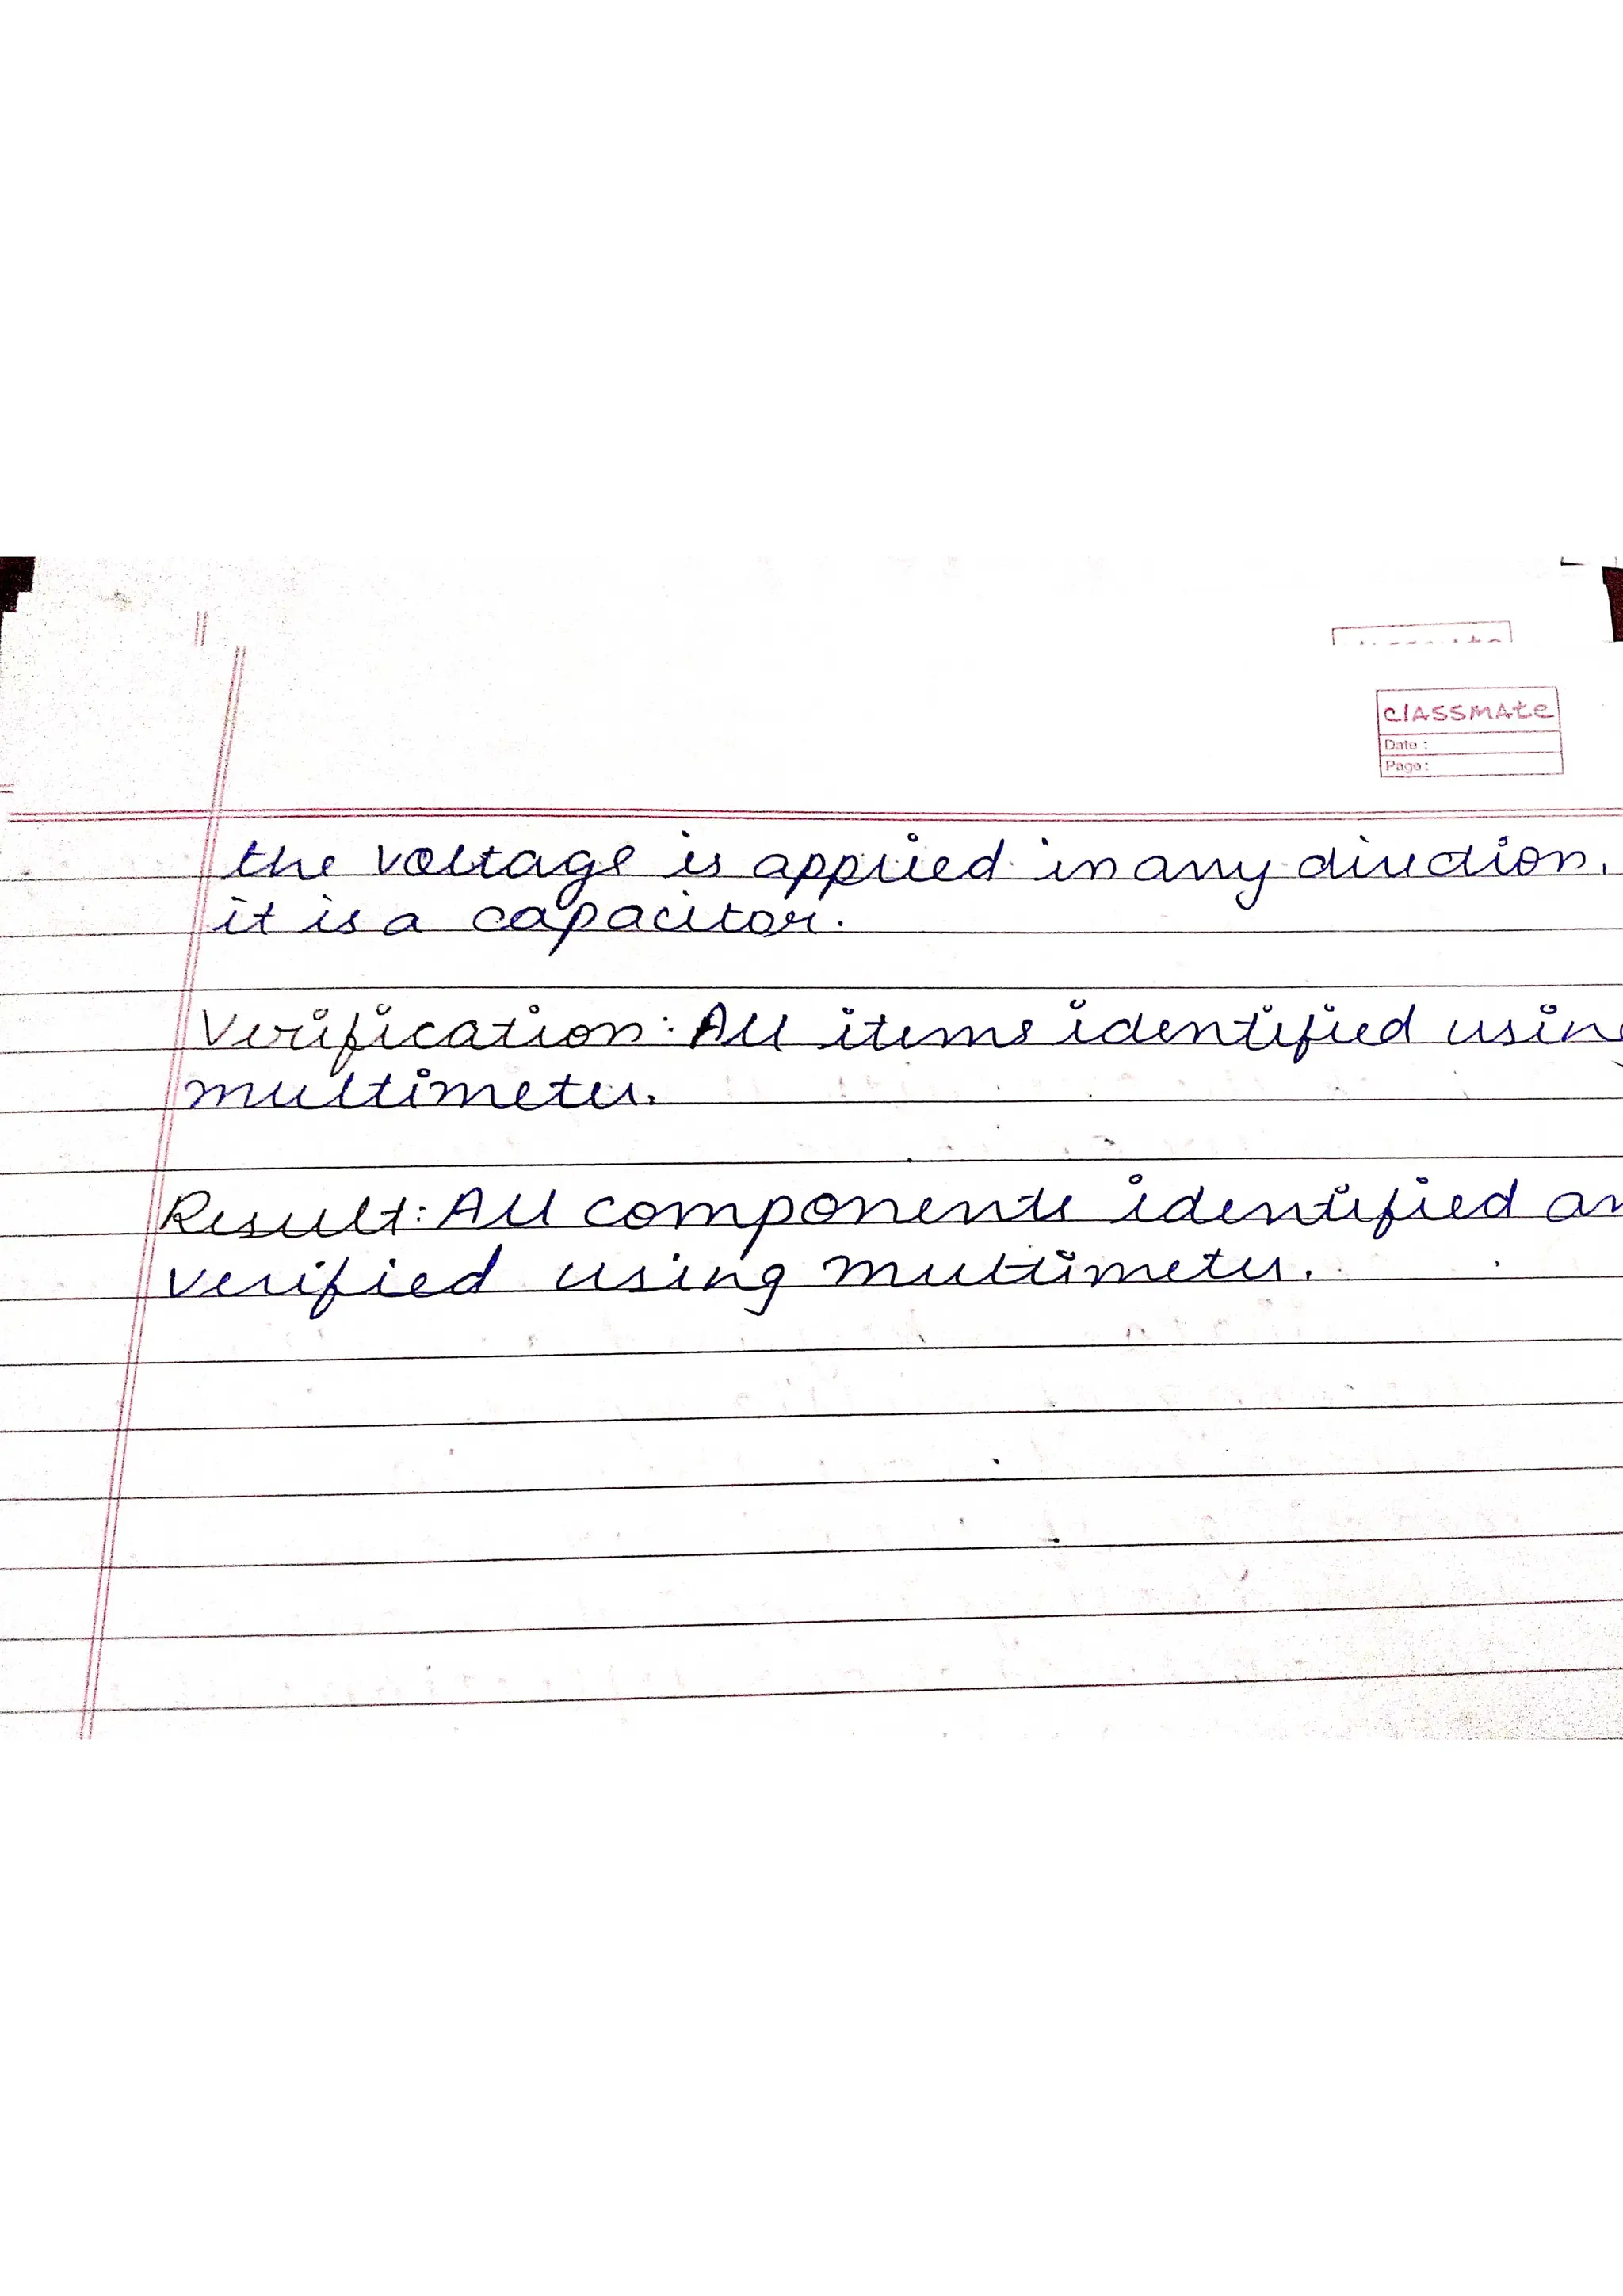 classmate
Date :
Page :
the voltage is applied in any direction,
it is a capacitor.
Verification: All items identified using
multimeter.
Result: All components identified an
verified using multimeter.